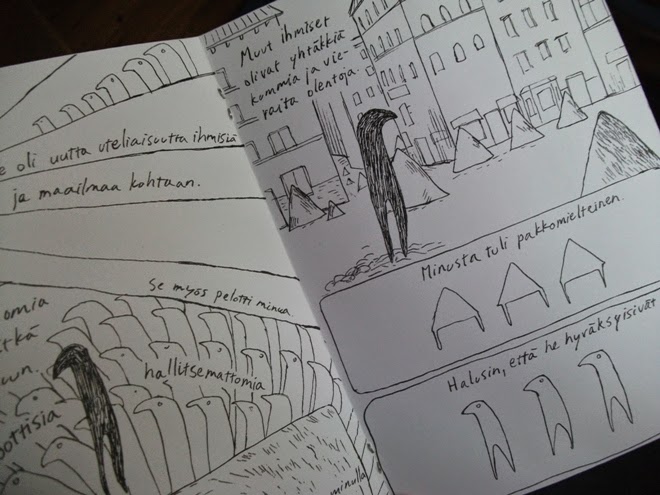 e oli uutta uteliaisuutta ihmisiä
ja maailmaa kohtaan.
Se myös pelotti minua
omia
tkä
un.
hallitsemattomia
oottisia
minulla
Muut ihmiset
olivat yhtäkkiä
kummia ja vie-
raita olentoja.
Minusta tuli pakkomielteinen.
Halusin, että he hyväksyisivät